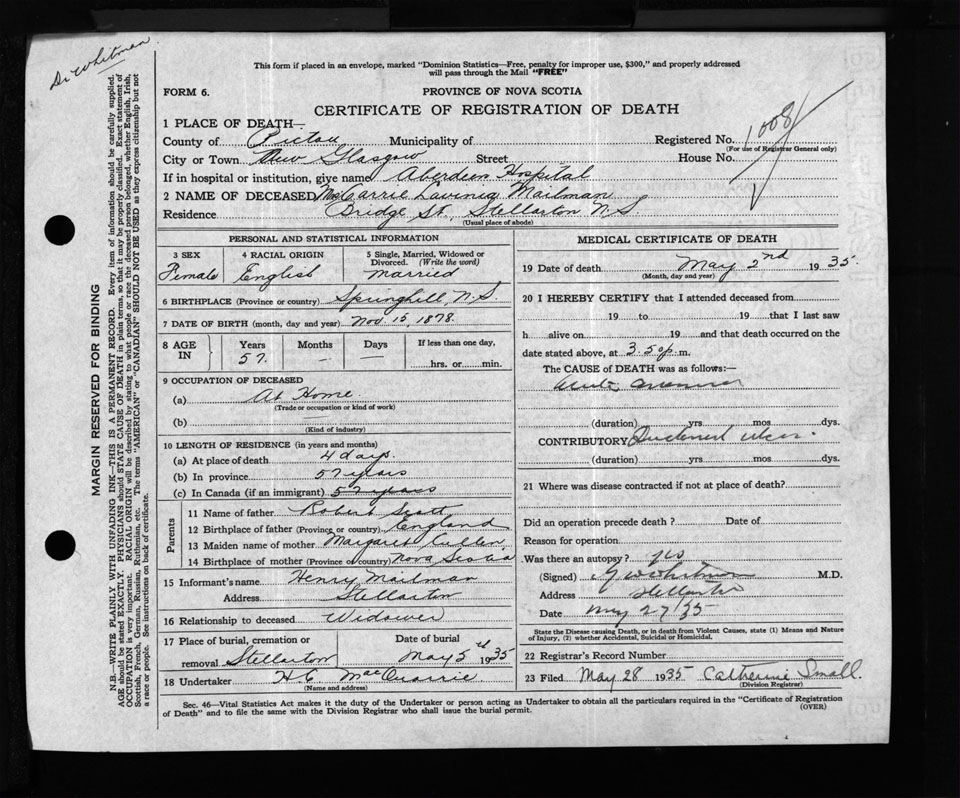 Dr Whitman
This form if placed in an envelope, marked "Dominion Statistics—Free, penalty for improper use, $300," and properly addressed
will pass through the Mail "FREE"
FORM 6.
PROVINCE OF NOVA SCOTIA
CERTIFICATE OF REGISTRATION OF DEATH
1 PLACE OF DEATH—
County of Pictou Municipality of Registered No. 1008
(For use of Registrar General only)
City or Town New Glasgow Street House No.
If in hospital or institution, give name Aberdeen Hospital
2 NAME OF DECEASED Mrs Carrie Lavinia Mailman
Residence Bridge St. Stellarton N.S.
(Usual place of abode)
PERSONAL AND STATISTICAL INFORMATION
3 SEX
Female
4 RACIAL ORIGIN
English
5 Single, Married, Widowed or
Divorced. (Write the word)
Married
6 BIRTHPLACE (Province or country) Springhill, N.S.
7 DATE OF BIRTH (month, day and year) Nov. 15, 1878.
8 AGE IN
Years Months Days If less than one day,
57. — — hrs. or min.
9 OCCUPATION OF DECEASED
(a) At Home
(Trade or occupation or kind of work)
(b)
(Kind of industry)
10 LENGTH OF RESIDENCE (in years and months)
(a) At place of death 4 days.
(b) In province 57 years
(c) In Canada (if an immigrant) 57 years
Parents
11 Name of father Robert Scott
12 Birthplace of father (Province or country) England
13 Maiden name of mother Margaret Cullen
14 Birthplace of mother (Province or country) Nova Scotia
15 Informant's name Henry Mailman
Address Stellarton
16 Relationship to deceased Widower
17 Place of burial, cremation or Date of burial
removal Stellarton May 5 1935
18 Undertaker H C MacQuarrie
(Name and address)
MEDICAL CERTIFICATE OF DEATH
19 Date of death May 2nd 1935.
(Month, day and year)
20 I HEREBY CERTIFY that I attended deceased from
19 to 19 that I last saw
h alive on 19 and that death occurred on the
date stated above, at 3.50 p. m.
The CAUSE of DEATH was as follows:—
Acute
(duration) yrs mos dys.
CONTRIBUTORY Duodenal ulcer.
(duration) yrs mos dys.
21 Where was disease contracted if not at place of death?
Did an operation precede death? Date of
Reason for operation
Was there an autopsy? yes
(Signed) Whitman M.D.
Address Stellarton
Date May 27/35
State the Disease causing Death, or in death from Violent Causes, state (1) Means and Nature
of Injury, (2) whether Accidental, Suicidal or Homicidal.
22 Registrar's Record Number
23 Filed May 28 1935 Catherine Small.
(Division Registrar)
Sec. 46—Vital Statistics Act makes it the duty of the Undertaker or person acting as Undertaker to obtain all the particulars required in the "Certificate of Registration
of Death" and to file the same with the Division Registrar who shall issue the burial permit.
(OVER)
MARGIN RESERVED FOR BINDING
N.B.—WRITE PLAINLY WITH UNFADING INK—THIS IS A PERMANENT RECORD. Every item of information should be carefully supplied.
AGE should be stated EXACTLY. PHYSICIANS should STATE CAUSE OF DEATH in plain terms, so that it may be properly classified. Exact statement of
OCCUPATION is very important. RACIAL ORIGIN will be described by stating to what people or race the deceased person belonged, whether English, Irish,
Scottish, French, German, Russian, Ruthenian, etc. The terms "AMERICAN" or "CANADIAN" SHOULD NOT BE USED as they express citizenship but not
a race or people. See instructions on back of certificate.